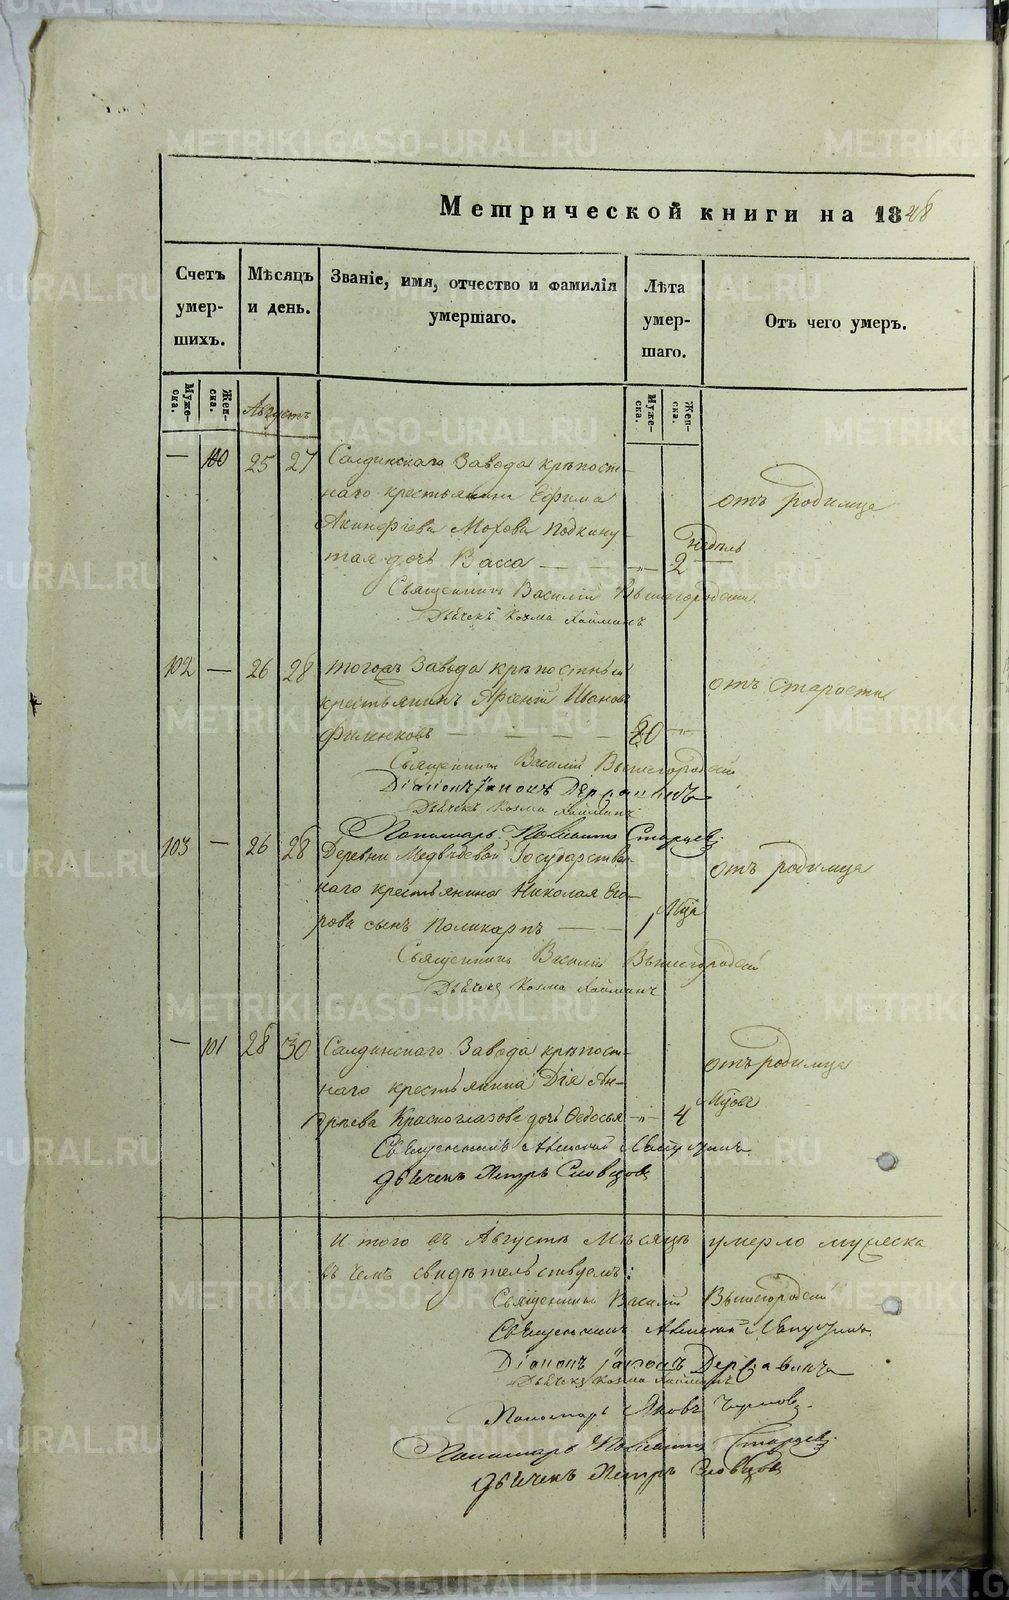 Метрической книги на 1848
Счетъ умер- шихъ.
Мѣсяцъ и день.
Званіе, имя, отчество и фамилія умершаго.
Лѣта умер- шаго.
Отъ чего умеръ.
Муже- ска.
Жен- ска.
Августъ
Муже- ска.
Жен- ска.
— 100 25 27 Салдинскаго Завода крѣпост-
наго крестьянина Ефима
отъ родимца
Акинфіева Мохова подкину-
недѣль
тая дочь Васса — — 2
Священникъ Василій Вышегородскій
Дьячекъ Козма Хайминъ
102 — 26 28 тогожъ Завода крѣпостный
крестьянинъ Арсеній Ивановъ
отъ старости
Филенковъ — — — 80 —
Священникъ Василій Вышегородскій
Діаконъ Іаковъ Державинъ
Дьячекъ Козма Хайминъ
Пономарь Старцев
103 — 26 28 Деревни Медвѣдевой Государствен-
отъ родимца
наго крестьянина Николая Его-
рова сынъ Поликарпъ — —
Священникъ Василій Вышегородскій
Дьячекъ Козма Хайминъ
— 101 28 30 Салдинскаго Завода крѣпост-
отъ родимца
наго крестьянина Дія Ан-
дрѣева Красноглазова дочь Федосья 4
Священникъ Алексій
Дьячекъ Петръ Словцовъ
Итого въ Августѣ Мѣсяцѣ умерло мужеска
въ чемъ свидѣтельствуемъ:
Священникъ Василій Вышегородскій
Священникъ Алексій
Діаконъ Іаковъ Державинъ
Дьячекъ Козма Хайминъ
Пономарь Яковъ
Пономарь Старцев
Дьячекъ Петръ Словцовъ
METRIKI.GASO-URAL.RU